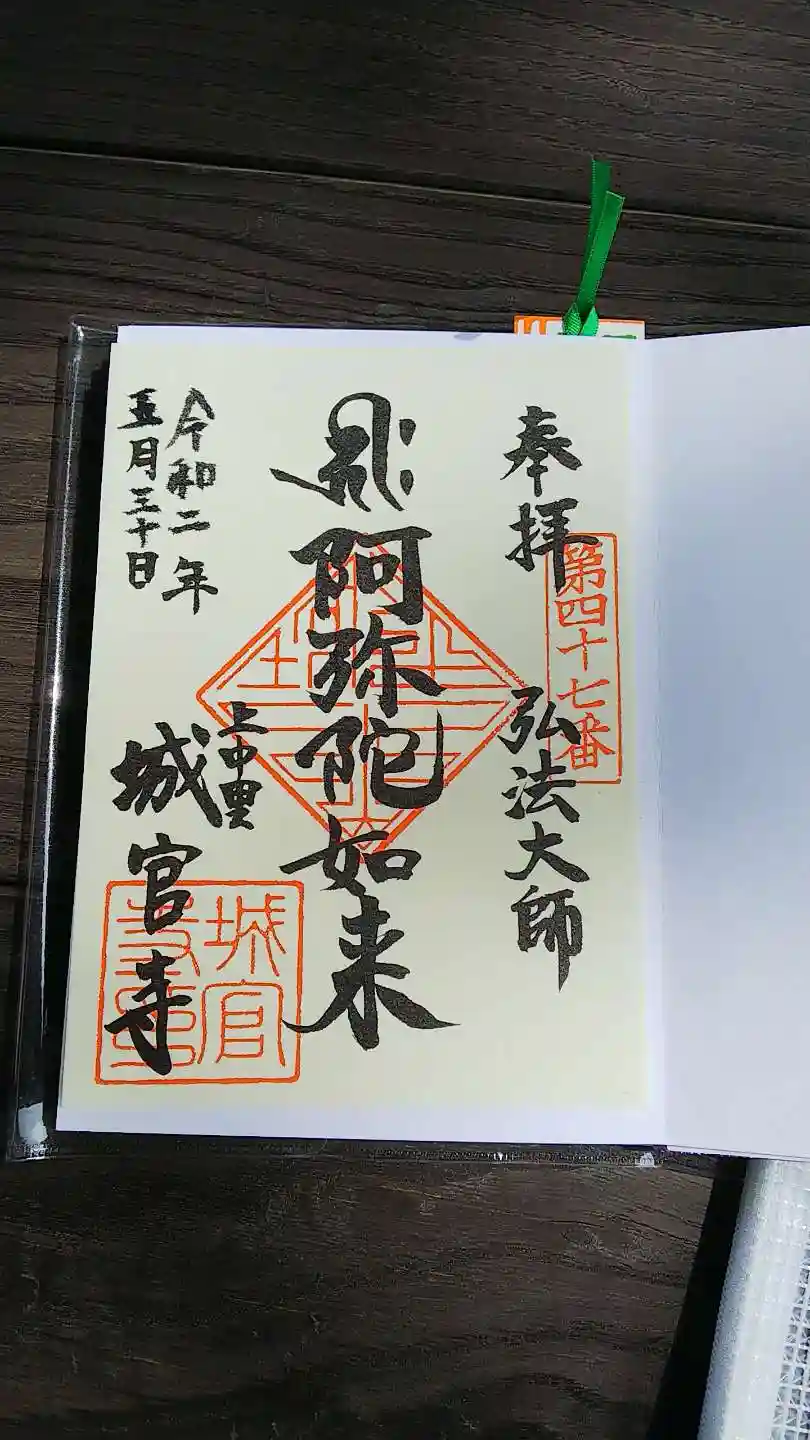 奉拝
第四十七番
弘法大師
阿弥陀如来
上中里
城官寺
令和二年
五月三十日
城官